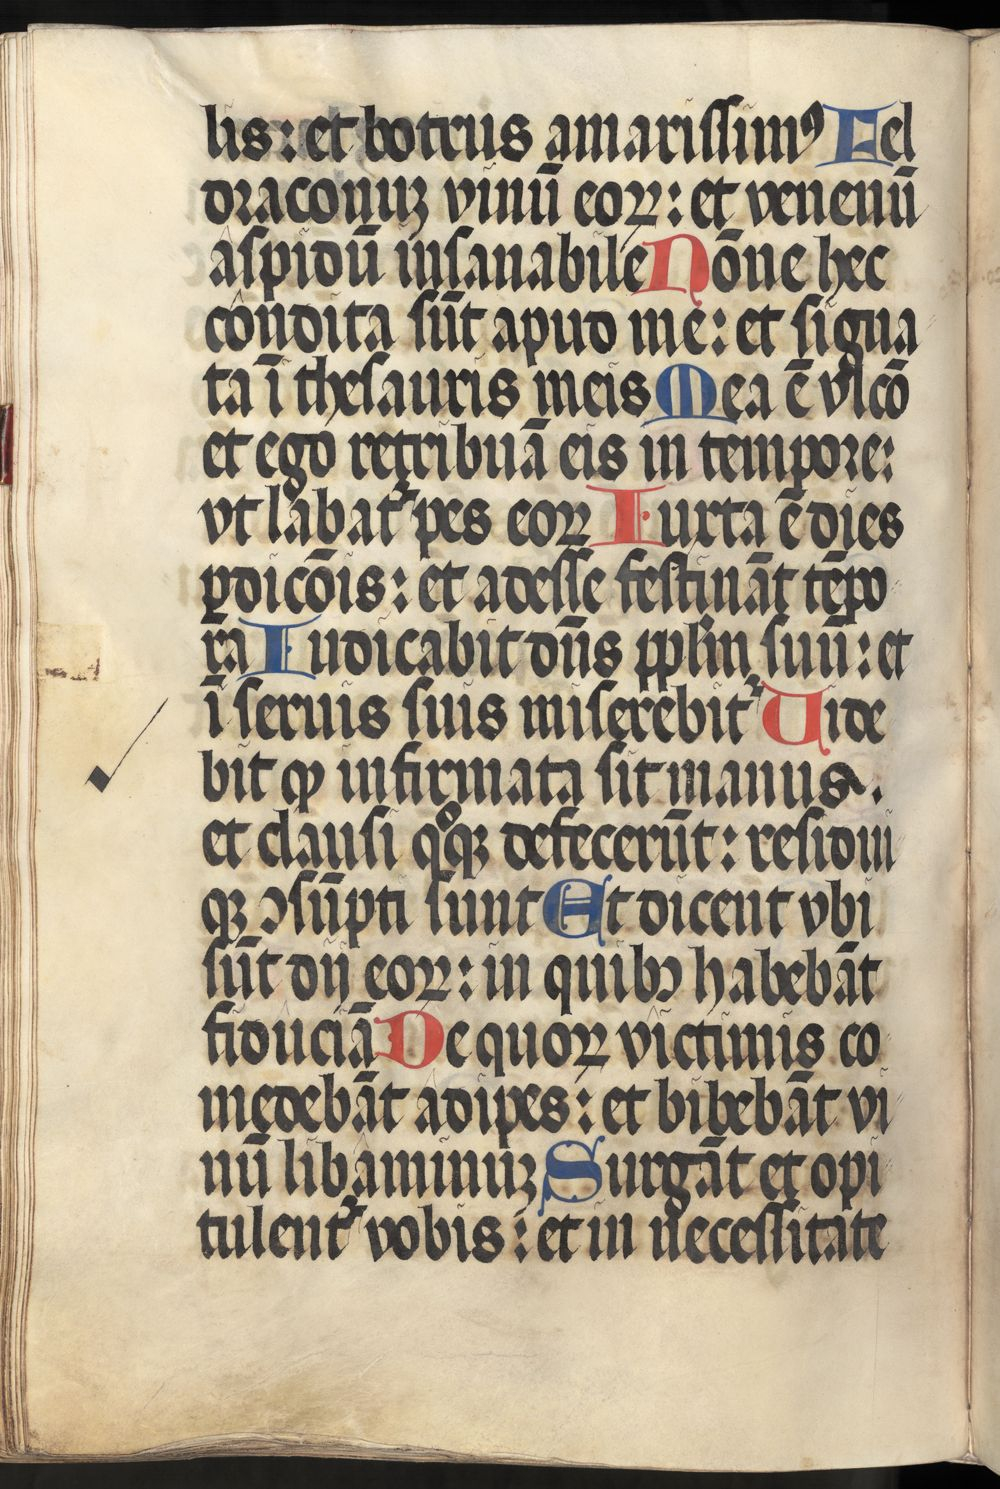 lis : et botrus amarissimꝰ Fel
draconuʒ vinū eoꝝ : et venenū
aspidū insanabile Nōne hec
condita sūt apud me : et signa
ta ī thesauris meis Mea ē vlcō
et ego retribuā eis in tempore :
vt labat᷑ pes eoꝝ Iuxta ē dies
ꝑdicōis : et adesse festināt tēpo
ra Iudicabit dn̄s pplm̄ suū : et
ī seruis suis miserebit᷑ Vide
bit ꝙ infirmata sit manus .
et clausi qͦqꝫ defecerūt : residui
qꝫ ↄsūpti sunt Et dicent vbi
sūt dij eoꝝ : in quibꝰ habebāt
fiduciā De quoꝝ victimis co
medebāt adipes : et bibebāt vi
nū libaminuʒ Surgāt et opi
tulent᷑ vobis : et in necessitate